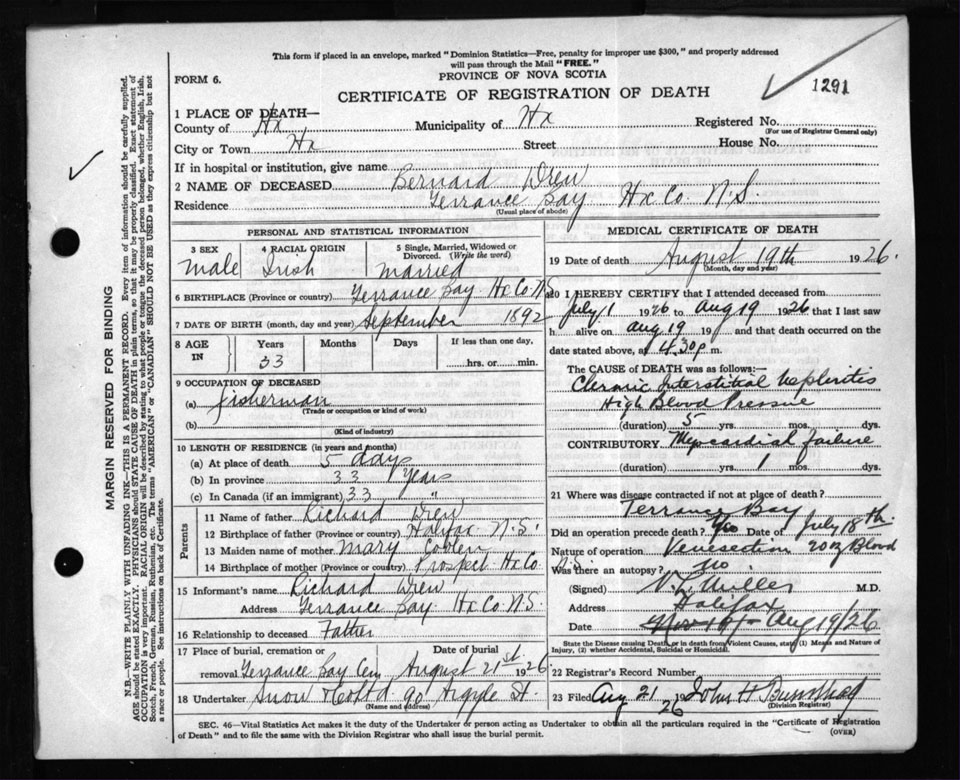 This form if placed in an envelope, marked "Dominion Statistics—Free, penalty for improper use $300," and properly addressed
will pass through the Mail "FREE."
FORM 6.
PROVINCE OF NOVA SCOTIA
1291
CERTIFICATE OF REGISTRATION OF DEATH
1 PLACE OF DEATH—
County of Hx Municipality of Hx Registered No.
(For use of Registrar General only)
City or Town Hx Street House No.
If in hospital or institution, give name
2 NAME OF DECEASED Bernard Drew
Residence Terrance Bay Hx Co. N.S
(Usual place of abode)
PERSONAL AND STATISTICAL INFORMATION
3 SEX 4 RACIAL ORIGIN 5 Single, Married, Widowed or Divorced. (Write the word)
Male Irish Married
6 BIRTHPLACE (Province or country) Terrance Bay Hx Co N.S
7 DATE OF BIRTH (month, day and year) September 1892
8 AGE IN Years Months Days If less than one day,
33 hrs. or min.
9 OCCUPATION OF DECEASED
(a) fisherman
(Trade or occupation or kind of work)
(b)
(Kind of industry)
10 LENGTH OF RESIDENCE (in years and months)
(a) At place of death 5 days
(b) In province 33 Years
(c) In Canada (if an immigrant) 33 "
Parents
11 Name of father Richard Drew
12 Birthplace of father (Province or country) Halifax N.S.
13 Maiden name of mother Mary
14 Birthplace of mother (Province or country) Prospect Hx Co
15 Informant's name Richard Drew
Address Terrance Bay Hx Co N.S.
16 Relationship to deceased Father
17 Place of burial, cremation or removal Date of burial
Terrance Bay Cem August 21st 1926
18 Undertaker Snow & Co Ltd 90 Argyle St.
(Name and address)
MEDICAL CERTIFICATE OF DEATH
19 Date of death August 19th 1926.
(Month, day and year)
20 I HEREBY CERTIFY that I attended deceased from
July 1 1926 to Aug 19 1926 that I last saw
h alive on Aug 19 19 and that death occurred on the
date stated above, at 4.30 p m.
The CAUSE OF DEATH was as follows:—
Chronic Interstitial Nephritis
High Blood Pressure
(duration) 5 yrs. mos. dys.
CONTRIBUTORY Myocardial failure
(duration) yrs. 1 mos. dys.
21 Where was disease contracted if not at place of death?
Terrance Bay
Did an operation precede death? Date of July 18th
Nature of operation Venesection 20 oz Blood
Was there an autopsy? no
(Signed) Miller M.D.
Address Halifax
Date Aug 19/26
State the Disease causing Death, or in death from Violent Causes, state (1) Means and Nature of
Injury, (2) whether Accidental, Suicidal or Homicidal.
22 Registrar's Record Number
23 Filed Aug 21 1926 John H
(Division Registrar)
SEC. 46—Vital Statistics Act makes it the duty of the Undertaker or person acting as Undertaker to obtain all the particulars required in the "Certificate of Registration
of Death" and to file the same with the Division Registrar who shall issue the burial permit.
(OVER)
MARGIN RESERVED FOR BINDING
N.B.—WRITE PLAINLY WITH UNFADING INK—THIS IS A PERMANENT RECORD. Every item of information should be carefully supplied.
AGE should be stated EXACTLY. PHYSICIANS should STATE CAUSE OF DEATH in plain terms, so that it may be properly classified. Exact statement of
OCCUPATION is very important. RACIAL ORIGIN will be described by stating to what people or tongue the deceased person belonged, whether English, Irish,
Scotch, French, German, Russian, Ruthenian, etc. The terms "AMERICAN" or "CANADIAN" SHOULD NOT BE USED as they express citizenship but not
a race or people. See instructions on back of Certificate.